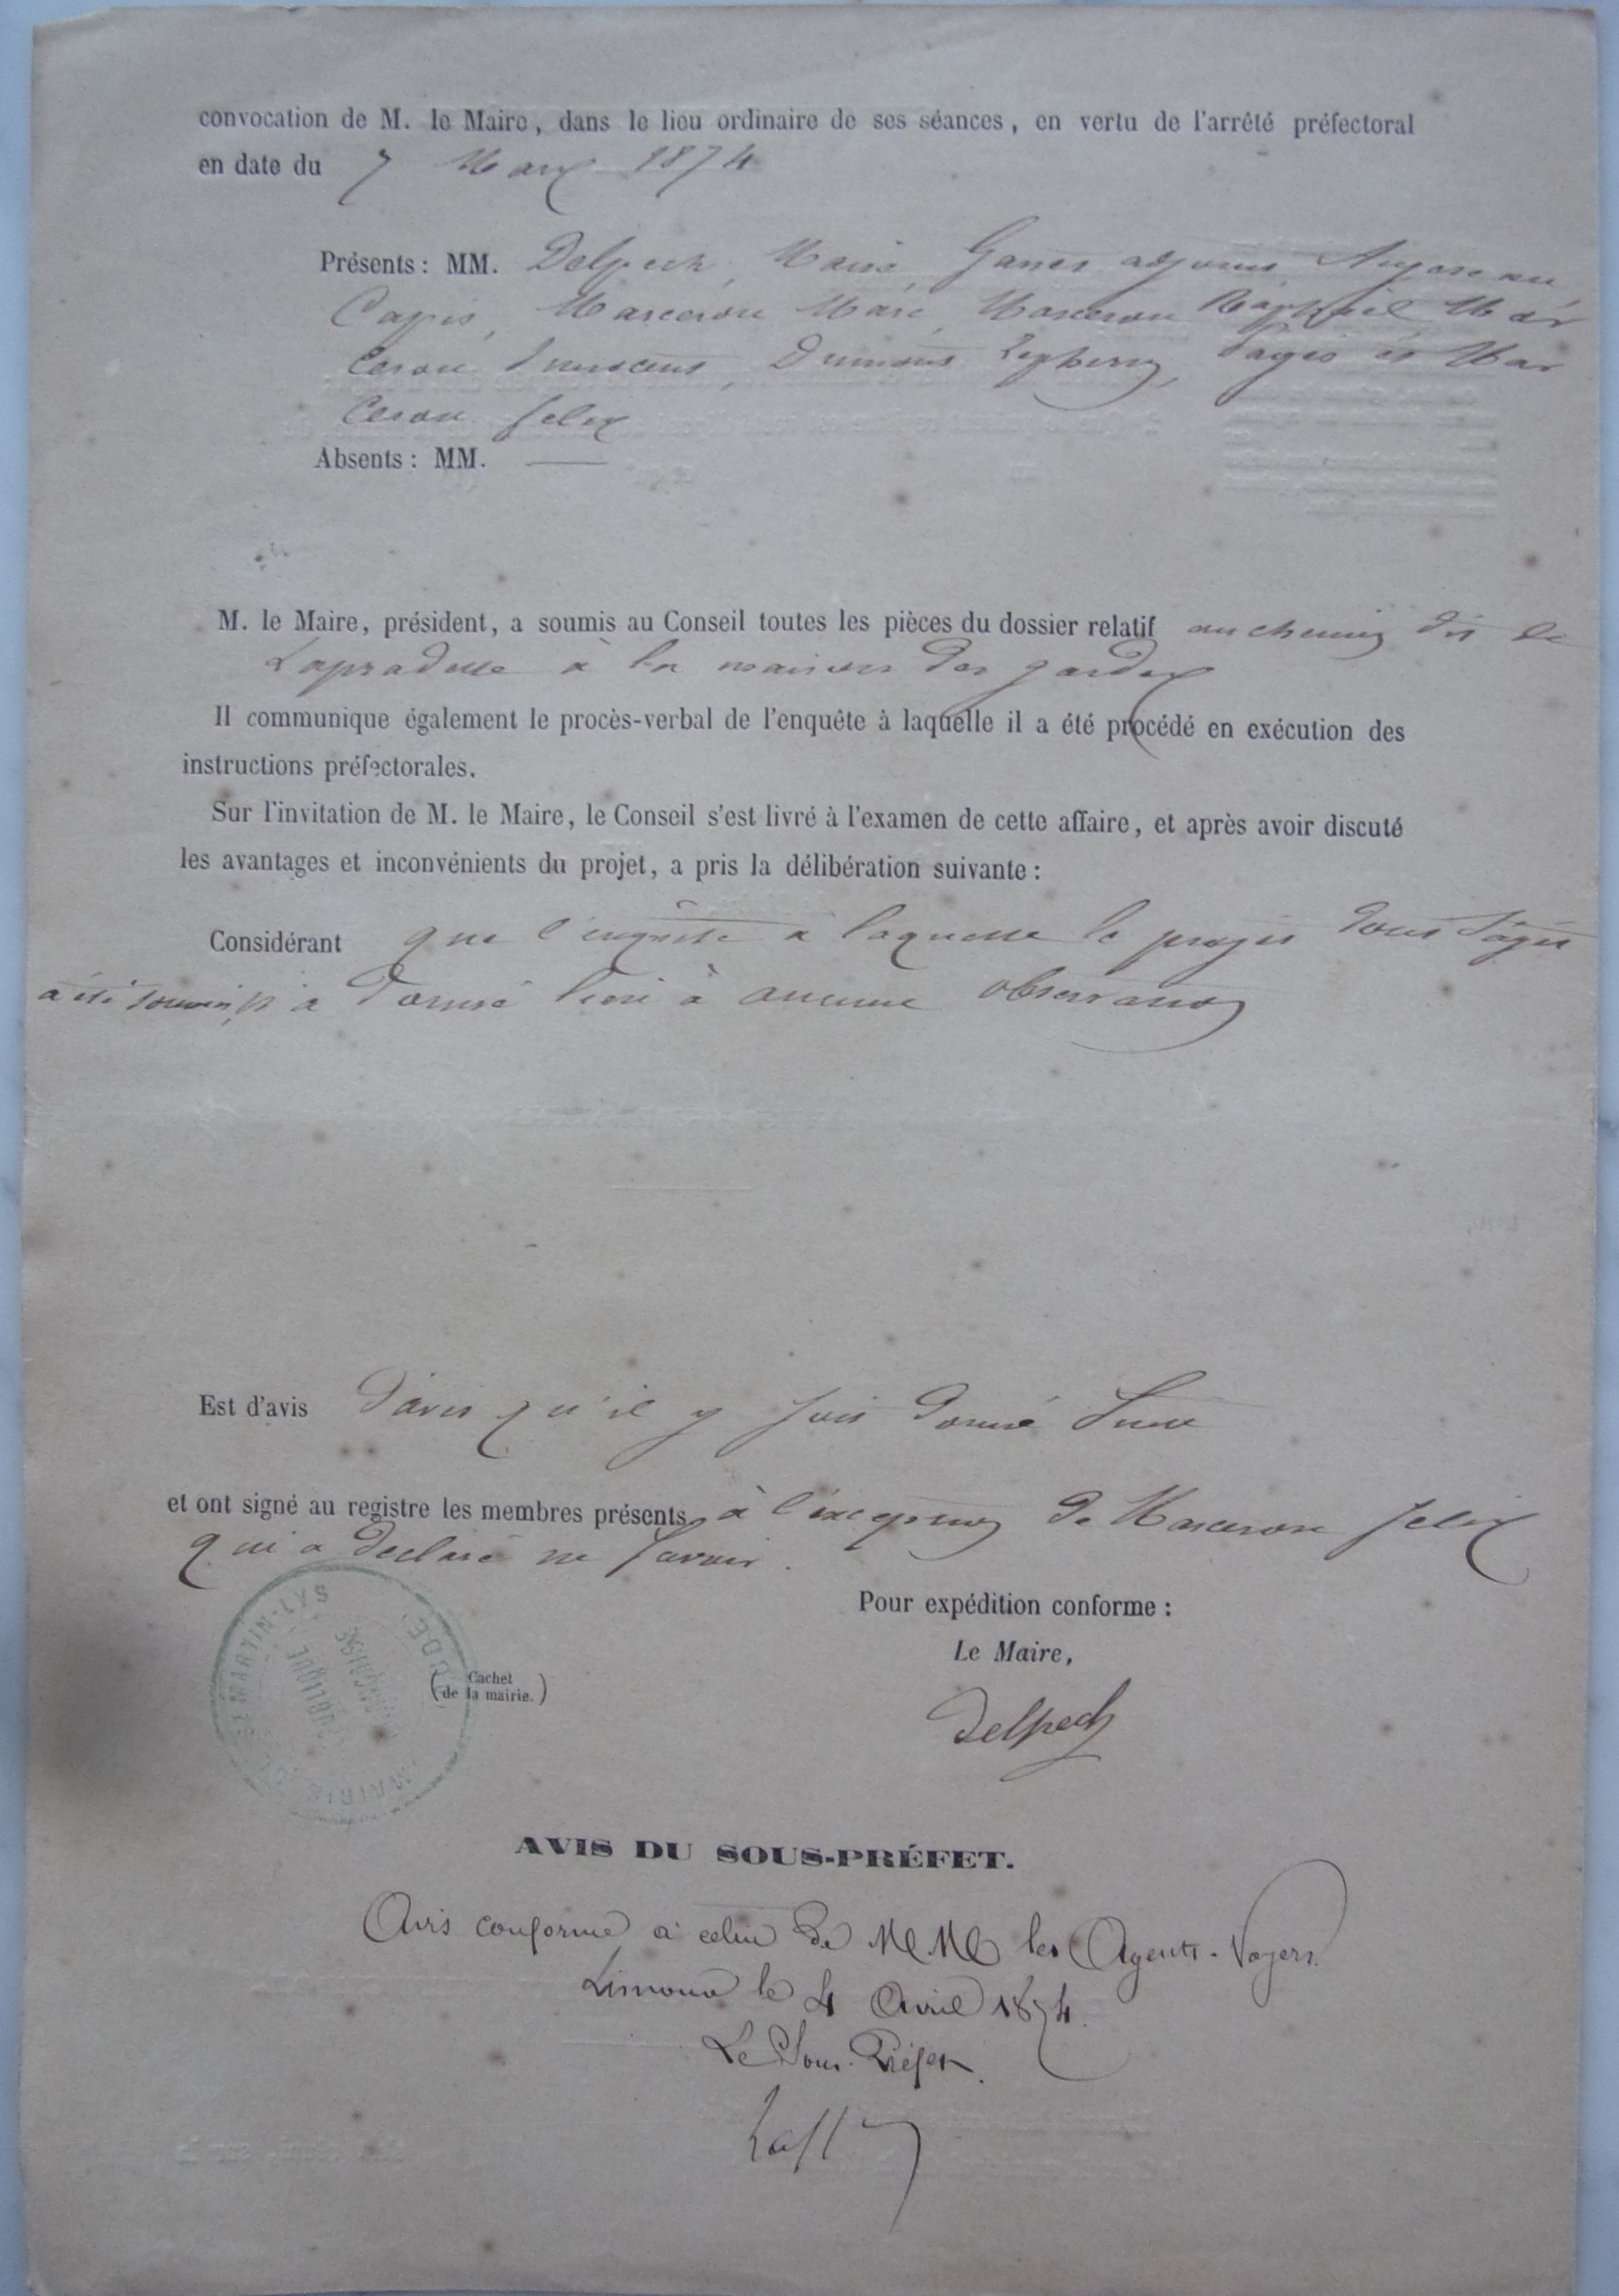 convocation de M. le Maire, dans le lieu ordinaire de ses séances, en vertu de l'arrêté préfectoral
en date du 7 Mars 1874
Présents : MM. Delpech, Maire, adjoint
Marcerou Marc, Marcerou Raphael Mar
cerou, Pagès et Mar
cerou felix
Absents : MM. —
M. le Maire, président, a soumis au Conseil toutes les pièces du dossier relatif au chemin dit de
Lapradelle à la maison des gardes
Il communique également le procès-verbal de l'enquête à laquelle il a été procédé en exécution des
instructions préfectorales.
Sur l'invitation de M. le Maire, le Conseil s'est livré à l'examen de cette affaire, et après avoir discuté
les avantages et inconvénients du projet, a pris la délibération suivante :
Considérant que l'enquête à laquelle le projet dont s'agit
a été soumis, a donné lieu à aucune observation
Est d'avis d'avis qu'il y soit donné suite
et ont signé au registre les membres présents, à l'exception de Marcerou felix
qui a declaré ne savoir.
Pour expédition conforme :
Le Maire,
(Cachet
de la mairie.)
Delpech
MARTIN-LYS
AVIS DU SOUS-PRÉFET.
Avis conforme à celui de MM les Agents-Voyers.
Limoux le 4 Avril 1874.
Le Sous-Préfet.